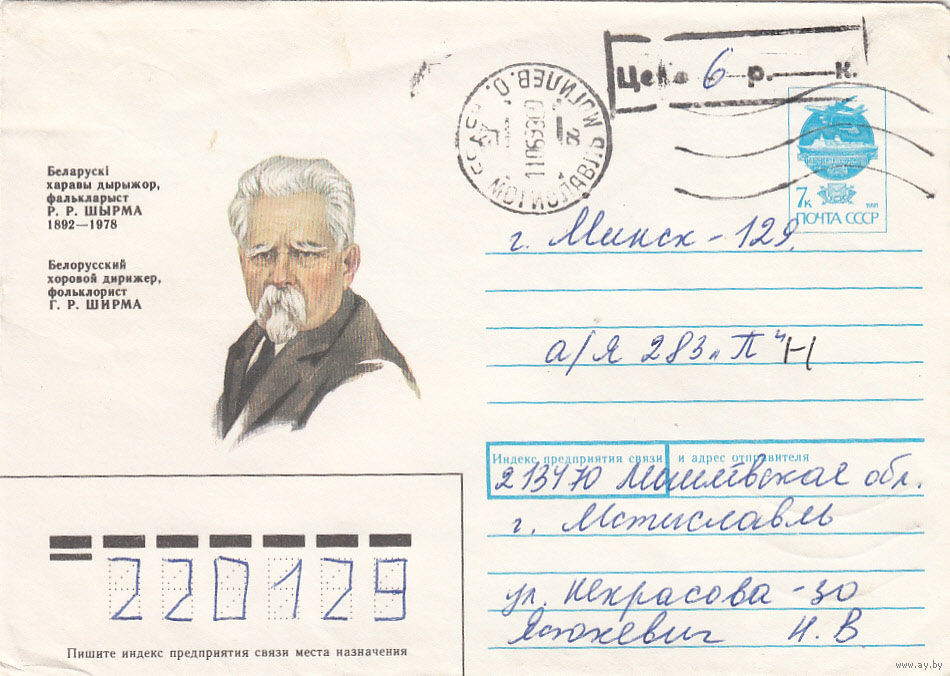 Цена 6 р. к.
МСТИСЛАВЛЬ МОГИЛЕВ. О.
7к
1991
ПОЧТА СССР
Беларускі
харавы дырыжор,
фалькларыст
Р. Р. ШЫРМА
1892—1978
Белорусский
хоровой дирижер,
фольклорист
Г. Р. ШИРМА
г. Минск - 129
а/я 283 „П“ Н
Индекс предприятия связи и адрес отправителя
213470 Могилёвская обл.
г. Мстиславль
ул. Некрасова - 30
Н. В
220129
Пишите индекс предприятия связи места назначения
www.ay.by